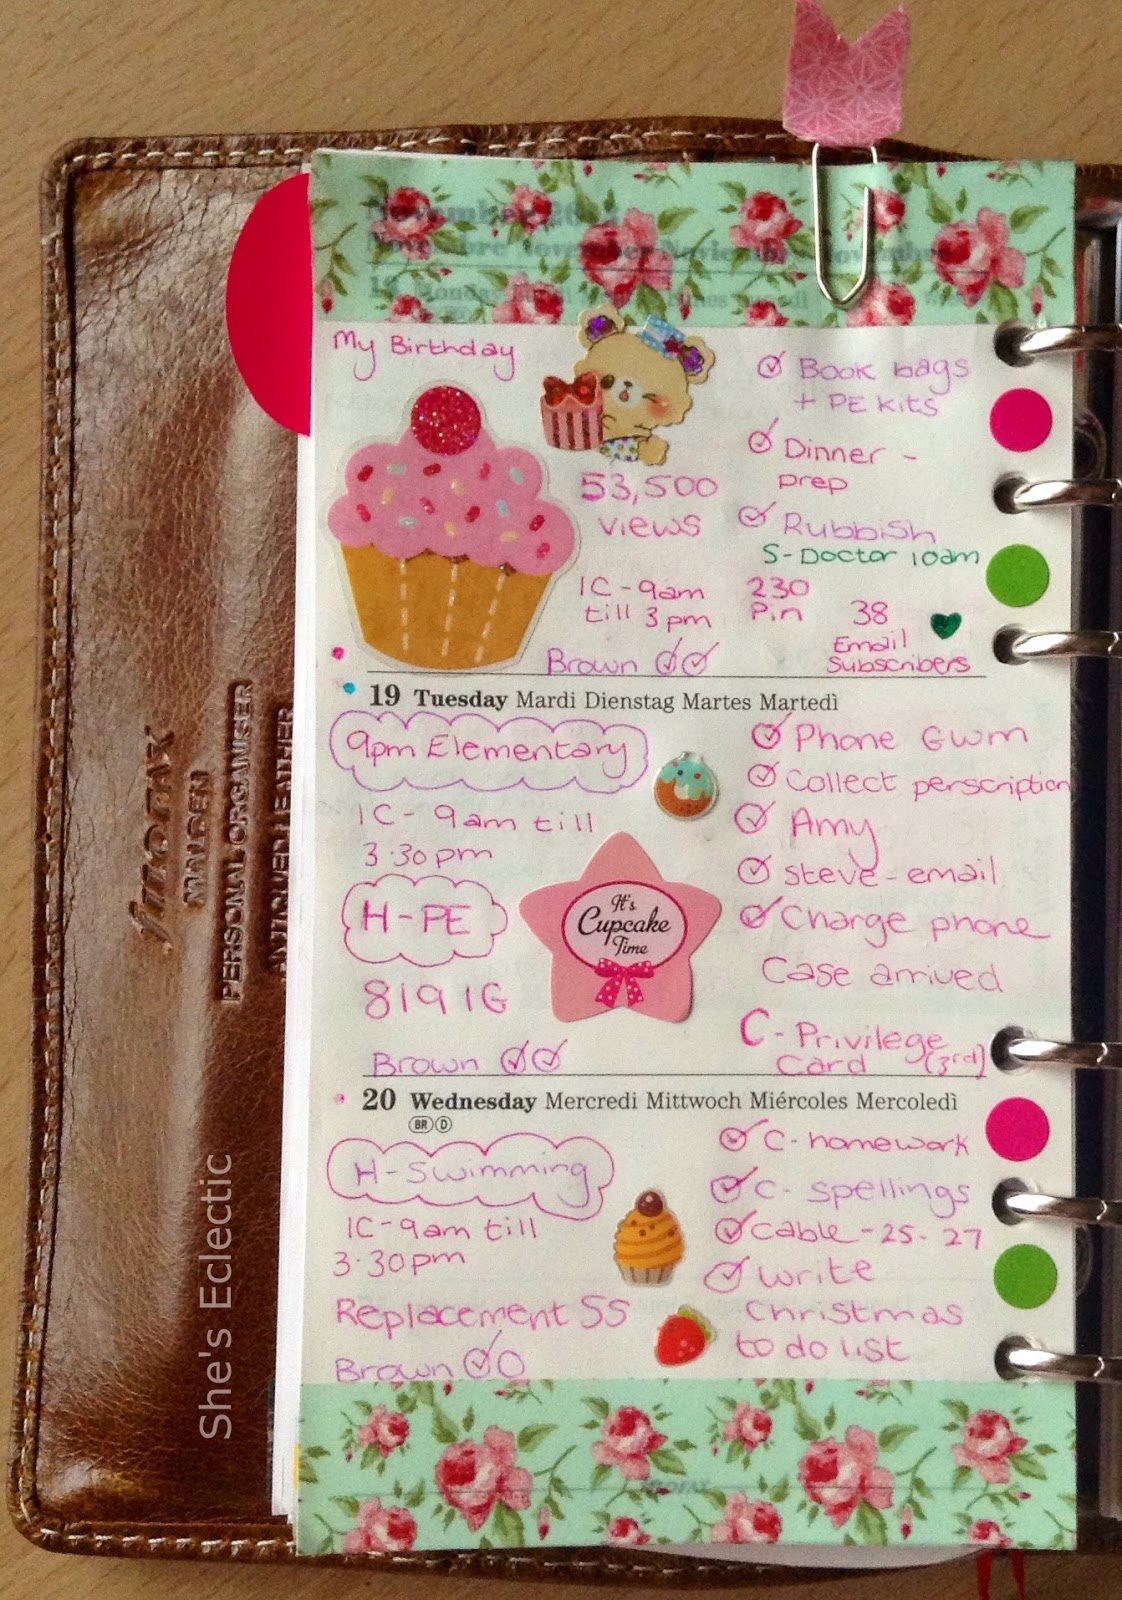 November
18 Monday
My Birthday
Book bags
+ PE Kits
Dinner -
prep
53,500
views
Rubbish
S-Doctor 10am
1C-9am
till 3pm
230
Pin
38
Email
Subscribers
Brown
19 Tuesday Mardi Dienstag Martes Martedì
9pm Elementary
1C- 9am till
3.30pm
H-PE
8191G
Brown
It's
Cupcake
Time
Phone Gwm
Collect perscription
Amy
Steve-email
Charge phone
Case arrived
C-Privilege
Card (3rd)
20 Wednesday Mercredi Mittwoch Miércoles Mercoledì
BR D
H-Swimming
1C-9am till
3.30pm
Replacement SS
Brown
C-homework
C- spellings
Cable-25-27
write
Christmas
to do list
filofax
MALDEN
PERSONAL ORGANISER
She's Eclectic